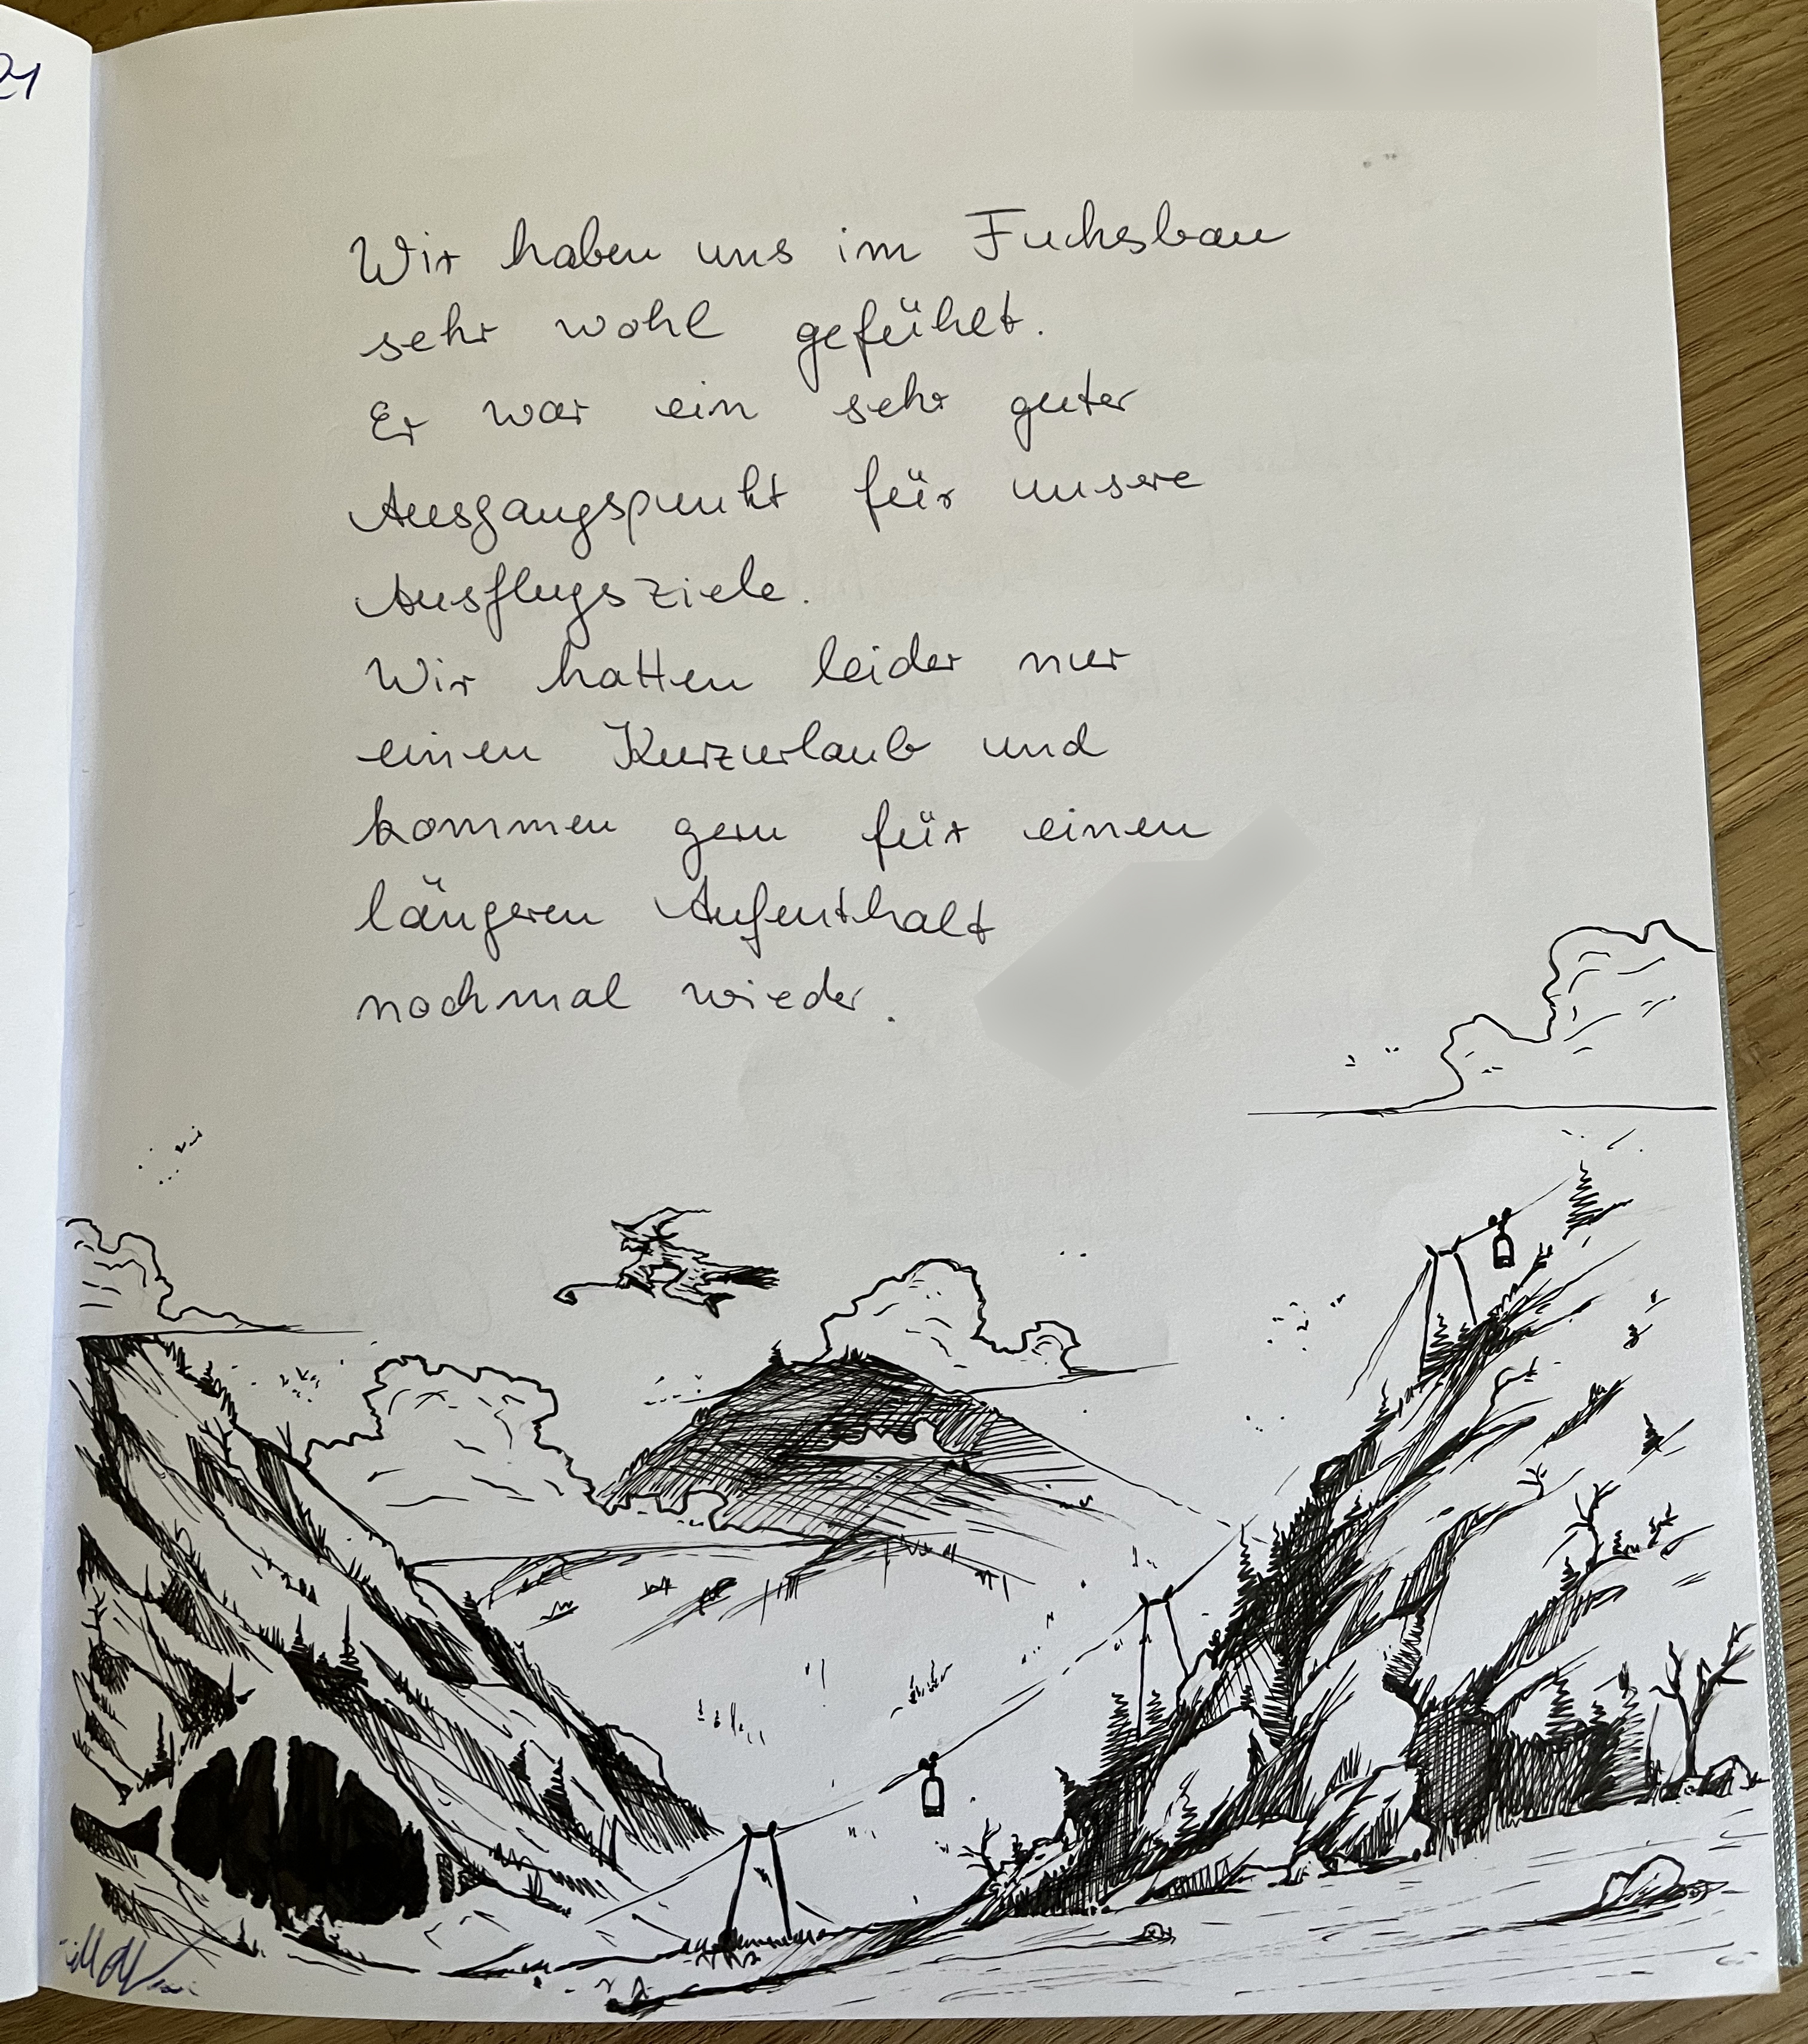 21
Wir haben uns im Fuchsbau
sehr wohl gefühlt.
Er war ein sehr guter
Ausgangspunkt für unsere
Ausflugsziele.
Wir hatten leider nur
einen Kurzurlaub und
kommen gern für einen
längeren Aufenthalt
nochmal wieder.